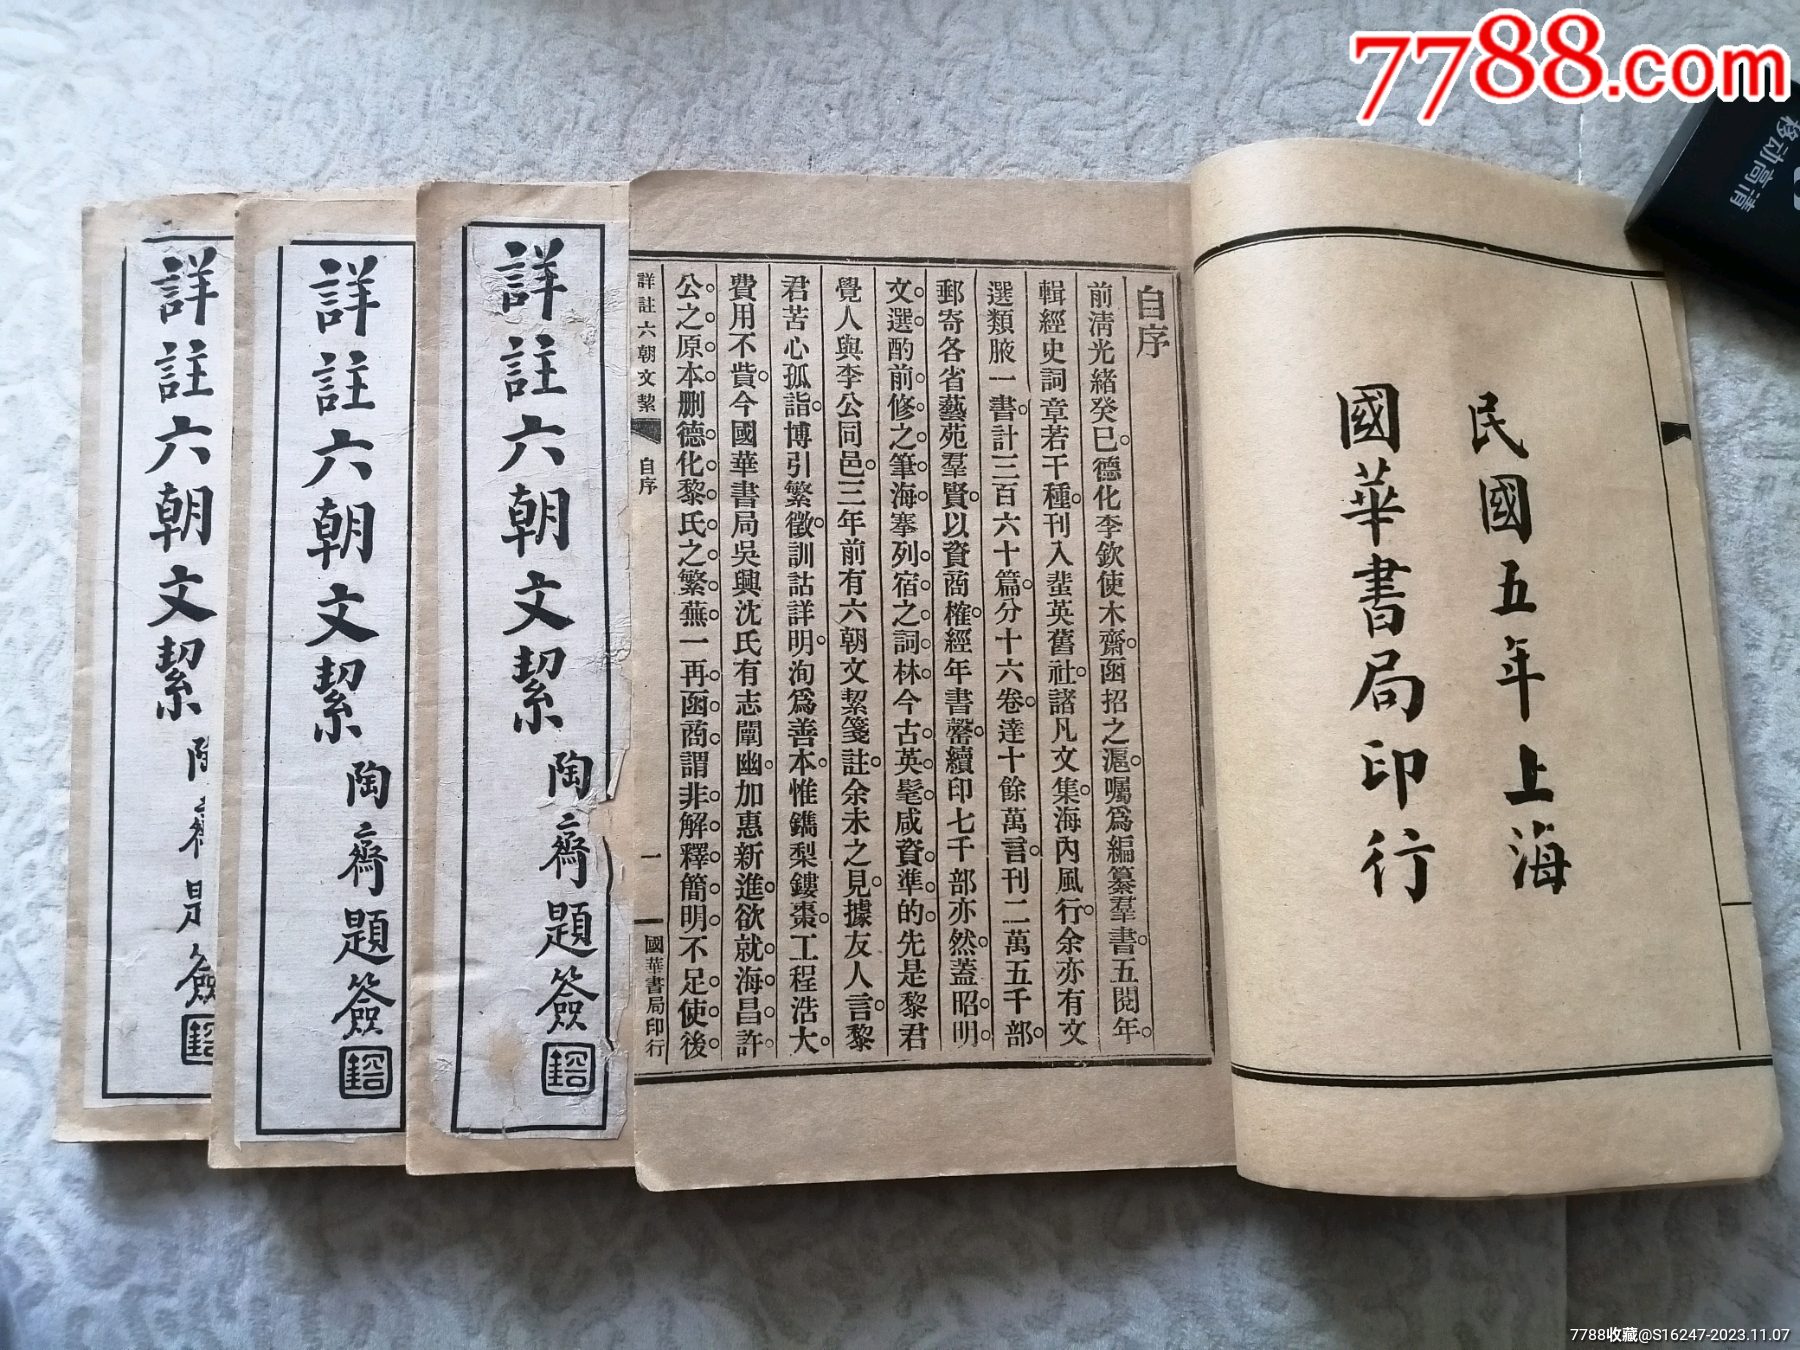 7788.com
移动高清
民國五年上海
國華書局印行
自序
前淸光緖癸巳德化李欽使木齋函招之滬囑爲編纂羣書五閱年
輯經史詞章若干種刊入蜚英舊社諸凡文集海內風行余亦有文
選類腋一書計三百六十篇分十六卷達十餘萬言刊二萬五千部
郵寄各省藝苑羣賢以資商榷經年書罄續印七千部亦然蓋昭明
文選酌前修之筆海搴列宿之詞林今古英髦咸資準的先是黎君
覺人與李公同邑三年前有六朝文絜箋註余未之見據友人言黎
君苦心孤詣博引繁徵訓詁詳明洵爲善本惟鐫梨鏤棗工程浩大
費用不貲今國華書局吳興沈氏有志闡幽加惠新進欲就海昌許
公之原本删德化黎氏之繁蕪一再函商謂非解釋簡明不足使後
詳註六朝文絜 自序 一 國華書局印行
詳註六朝文絜
陶齋題簽
詳註六朝文絜
陶齋題簽
詳註六朝文絜
陶齋題簽
7788收藏@S16247-2023.11.07